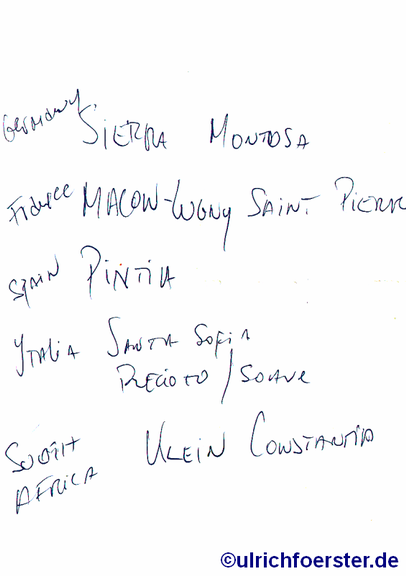 Germany Sierra Montosa
France Macon-Lugny Saint Pierre
Spain Pintia
Italia Santa Sofia
Recioto / Soave
South Klein Constantia
Africa
©ulrichfoerster.de